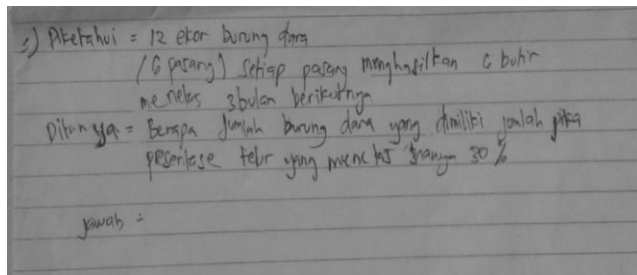 Diketahui = 12 ekor burung dara
(6 pasang) setiap pasang menghasilkan 6 butir
menetas 3 bulan berikutnya
Ditanya = Berapa jumlah burung dara yang dimiliki jika
presentase telur yang menetas hanya 30 %
jawab =